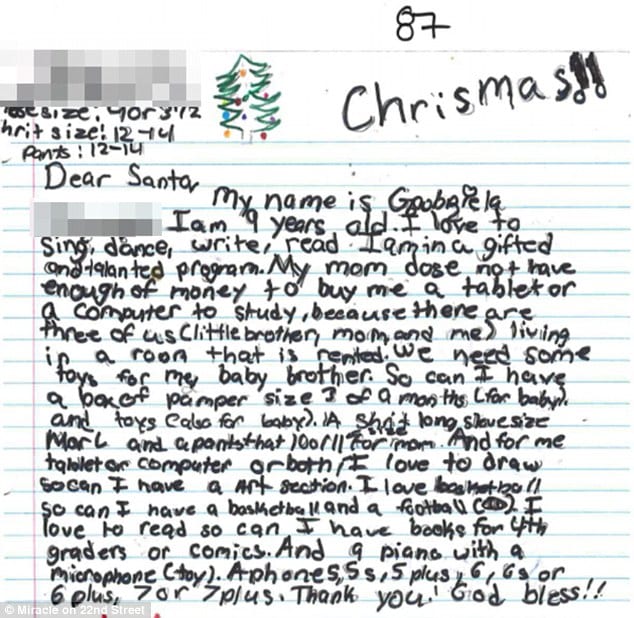 87
Chrismas!!
size: 4 or 3 1/2
hrit size: 12-14
Pants: 12-14
Dear Santa
My name is
I am 9 years old. I love to
Sing, dance, write, read. I am in a gifted
and talanted program. My mom dose not have
enough of money to buy me a tablet or
a computer to study, because there are
three of us (little brother, mom, and me) living
in a room that is rented. We need some
toys for my baby brother. So can I have
a box of pamper size 3 of 9 months (for baby).
and toys (also for baby). A shrit long slove size
M or L and a pants that 10 or 11 for mom. And for me
tablet or computer or both! I love to draw
so can I have a art section. I love basketball
so can I have a basketball and a football. I
love to read so can I have books for 4th
graders or comics. And a piano with a
microphone (toy). A phone 5, 5s, 5 plus, 6, 6s or
6 plus, 7 or 7 plus. Thank you! God bless!!
© Miracle on 22nd Street